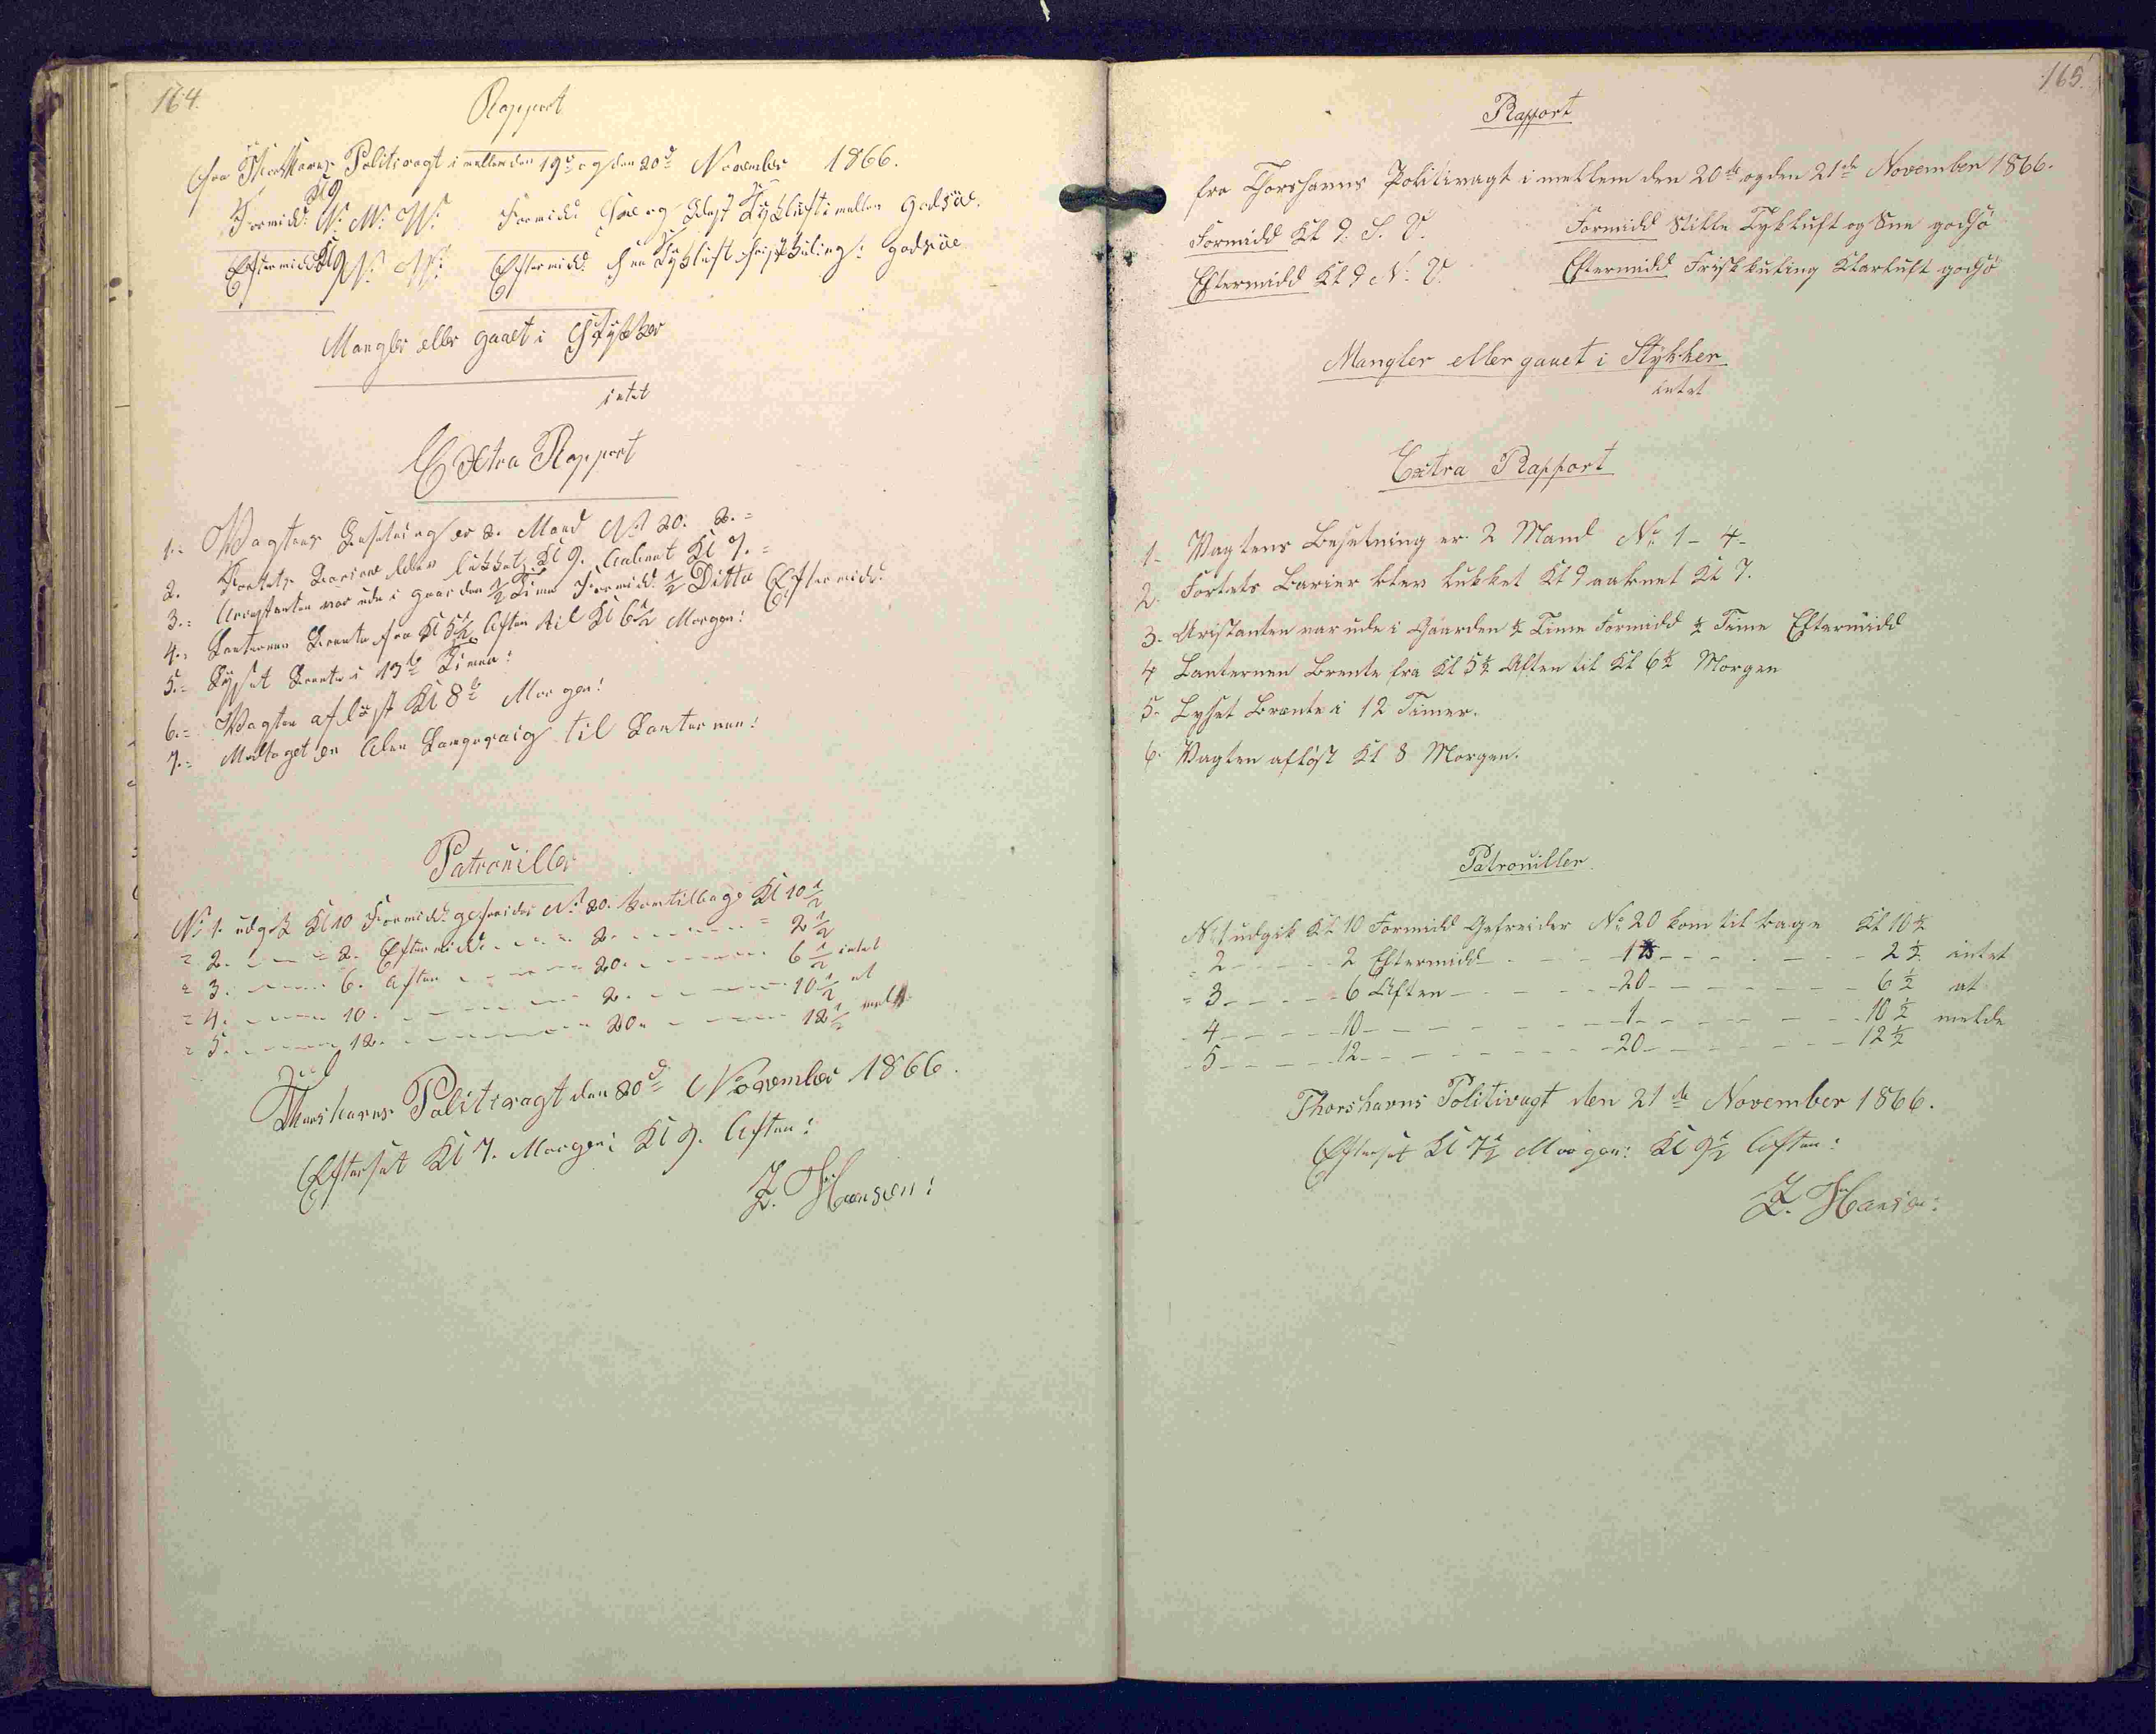 164.
Rapport
fra Thorshavns Politivagt i mellem den 19de og den 20de November 1866.
Kl 9
Formidd: N. N. V. Formidd: Snee og Blæst Tykluft i mellem godsöe.
Eftermidd Kl 9 N. V. Eftermidd: Snee Tykluft friskkuling: godsöe
Mangler eller gaaet i Stykker
intet
Extra Rapport
1.= Vagtens Besetning er 2. Mand No 20. 2.=
2. Fortets Bariere blev lukket Kl 9. aabnet Kl 7.=
3.= Arrestanten var ude i gaarden 1/2 Time Formidd: 1/2 Ditto Eftermidd:
4.= Lanternen Brente fra Kl 5 1/2 Aften til Kl 6 1/2 Morgen!
5.= Lyset Brente i 13 Timer!
6.= Vagten aflöst Kl 8 Morgen!
7.= Modtaget en Alen Lampevæig til Lanternen!
Patrouiller
No 1. udgik Kl 10 Formidd: gefreider No 20. kom tilbage Kl 10 1/2
= 2. - - = 2. Eftermidd: - - - 2. - - - = 2 1/2
= 3. - - - 6. Aften - - - 20. - - - 6 1/2 intet
= 4. - - - 10. - - - 2. - - - 10 1/2 at
= 5. - - - 12. - - - 20. - - - 12 1/2 meld
Thorshavns Politivagt den 20de November 1866.
Efterset Kl 7. Morgen: Kl 9. Aften:
Z. Hansen:
165.
Rapport
fra Thorshavns Politivagt i mellem den 20de og den 21de November 1866.
Formidd Kl 9. S. V. Formidd Stille Tykluft og Sne godsö
Eftermidd Kl 9 N. V. Eftermidd Friskkuling Klarluft godsö
Mangler eller gaaet i Stykker
intet
Extra Rapport
1. Vagtens Besetning er 2 Mand No 1 - 4 -
2. Fortets Barier blev lukket Kl 9 aabnet Kl 7.
3. Aristanten var ude i Gaarden 1/2 Time Formidd 1/2 Time Eftermidd
4 Lanternen Brente fra Kl 5 1/2 Aften til Kl 6 1/2 Morgen
5. Lyset Brente i 12 Timer.
6. Vagten aflöst Kl 8 Morgen.
Patrouiller
No 1 udgik Kl 10 Formidd Gefreider No 20 kom tilbage Kl 10 1/2
= 2 - - - 2 Eftermidd - - - 1 - - - 2 1/2 intet
= 3 - - - 6 Aften - - - 20 - - - 6 1/2 at
- 4 - - - 10 - - - 1 - - - 10 1/2 melde
- 5 - - - 12 - - - 20 - - - 12 1/2
Thorshavns Politivagt den 21de November 1866.
Efterset Kl 7 1/2 Morgen: Kl 9 1/2 Aften:
Z. Hansen: